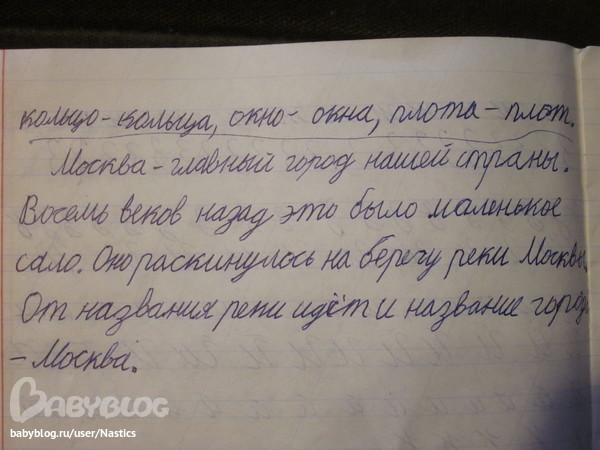 кольцо-кольца, окно- окна, плота-плот.
Москва-главный город нашей страны.
Восемь веков назад это было маленькое
сало. Оно раскинулось на берегу реки Москвы.
От названия реки идёт и название города
-Москва.
BABYBLOG
babyblog.ru/user/Nastics